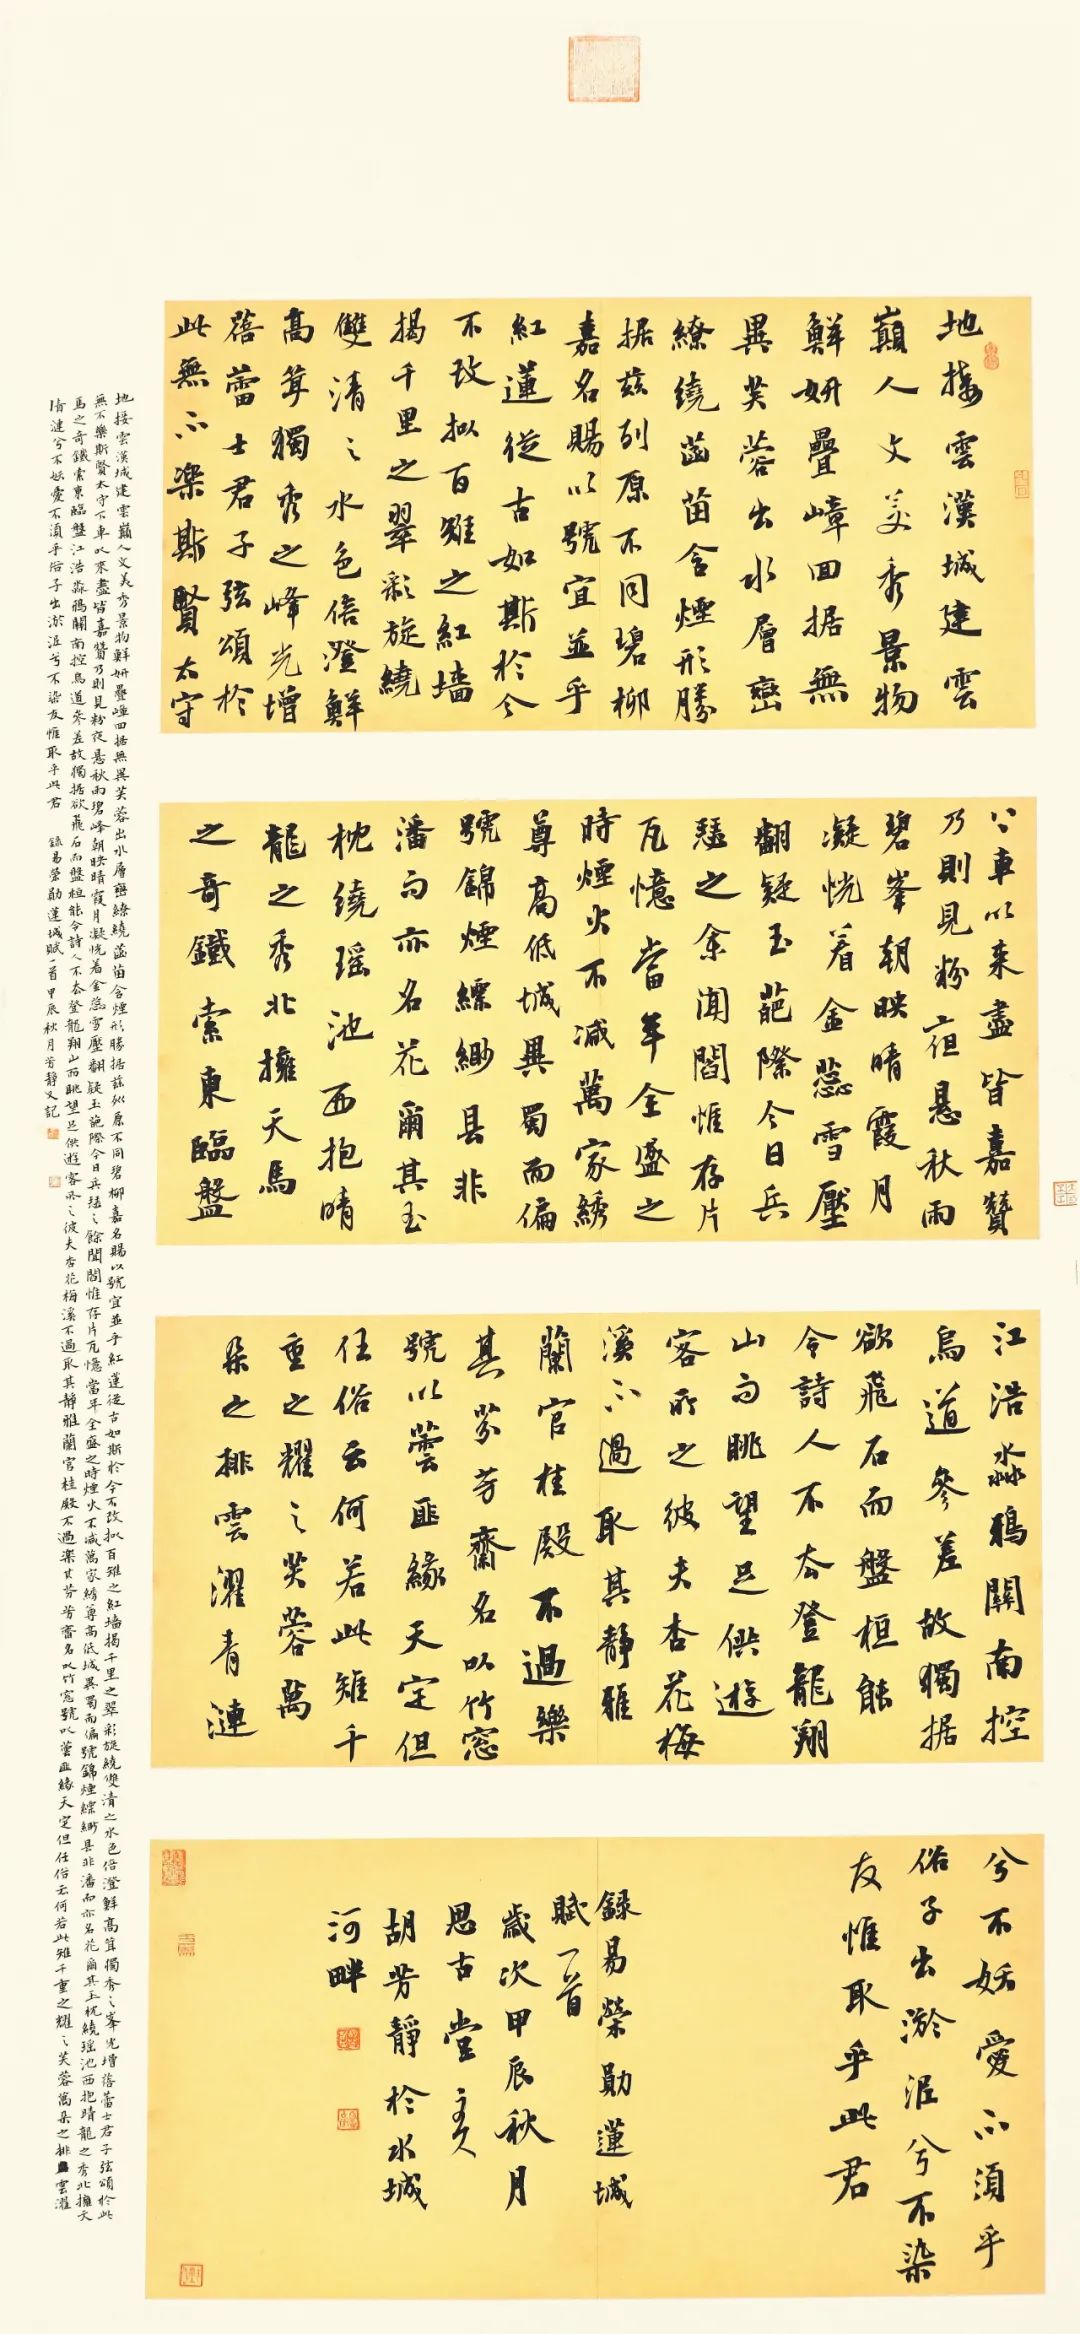 地接雲漢城建雲
巔人文美秀景物
鮮妍疊嶂回據無
異芙蓉出水層巒
繚繞菡萏含煙形勝
据茲列原不同碧柳
嘉名賜以號宜並乎
紅蓮從古如斯於今
不改拟百雉之紅墻
揭千里之翠彩旋繞
雙清之水色倍澄鮮
高箕獨秀之峰光增
蓓蕾士君子弦頌於
此無不樂斯賢太守
下車以来盡皆嘉贊
乃則見粉夜悬秋雨
碧峯朝映晴霞月
凝恍着金蕊雪壓
翻疑玉葩際今日兵
燹之余閭閻惟存片
瓦憶當年全盛之
時煙火不减萬家綉
尊高低城異蜀而偏
號錦煙縹緲县非
潘而亦名花爾其玉
枕繞瑶池西抱晴
龍之秀北擁天馬
之奇鐵索東臨盤
江浩淼鴉關南控
鳥道參差故獨据
欲飛石而盤桓能
令詩人不忝登龍翔
山而眺望足供遊
客所之彼夫杏花梅
溪不過取其靜雅
蘭宫桂殿不過樂
其芬芳齋名以竹窓
號以蕓匪緣天定但
任俗云何若此雉千
重之耀之芙蓉萬
朵之排雲濯青漣
兮不妖愛不須乎
俗子出淤泥兮不染
友惟取乎此君
録易榮勛蓮城
賦一首
歲次甲辰秋月
思古堂主人
胡芳靜於水城
河畔
地接雲漢城建雲巔人文美秀景物鮮妍疊嶂回据無異芙蓉出水層巒繚繞菡萏含煙形勝据茲列原不同碧柳嘉名賜以號宜並乎紅蓮從古如斯於今不改拟百雉之紅墻揭千里之翠彩旋繞雙清之水色倍澄鮮高箕獨秀之峯光增蓓蕾士君子弦頌於此
無不樂斯賢太守下車以來盡皆嘉贊乃則見粉夜悬秋雨碧峰朝映晴霞月凝恍着金蕊雪壓翻疑玉葩際今日兵燹之餘閭閻惟存片瓦憶當年全盛之時煙火不减萬家綉尊高低城異蜀而偏號錦煙縹緲县非潘而亦名花爾其玉枕繞瑶池西抱晴龍之秀北擁天
馬之奇鐵索東臨盤江浩淼鴉關南控鳥道參差故獨据欲飛石而盤桓能令詩人不忝登龍翔山而眺望足供遊客所之彼夫杏花梅溪不過取其靜雅蘭宫桂殿不過樂其芬芳齋名以竹窓號以蕓匪緣天定但任俗云何若此雉千重之耀之芙蓉萬朵之排雲濯
清漣兮不妖愛不須乎俗子出淤泥兮不染友惟取乎此君 録易榮勛蓮城賦一首甲辰秋月芳靜又記